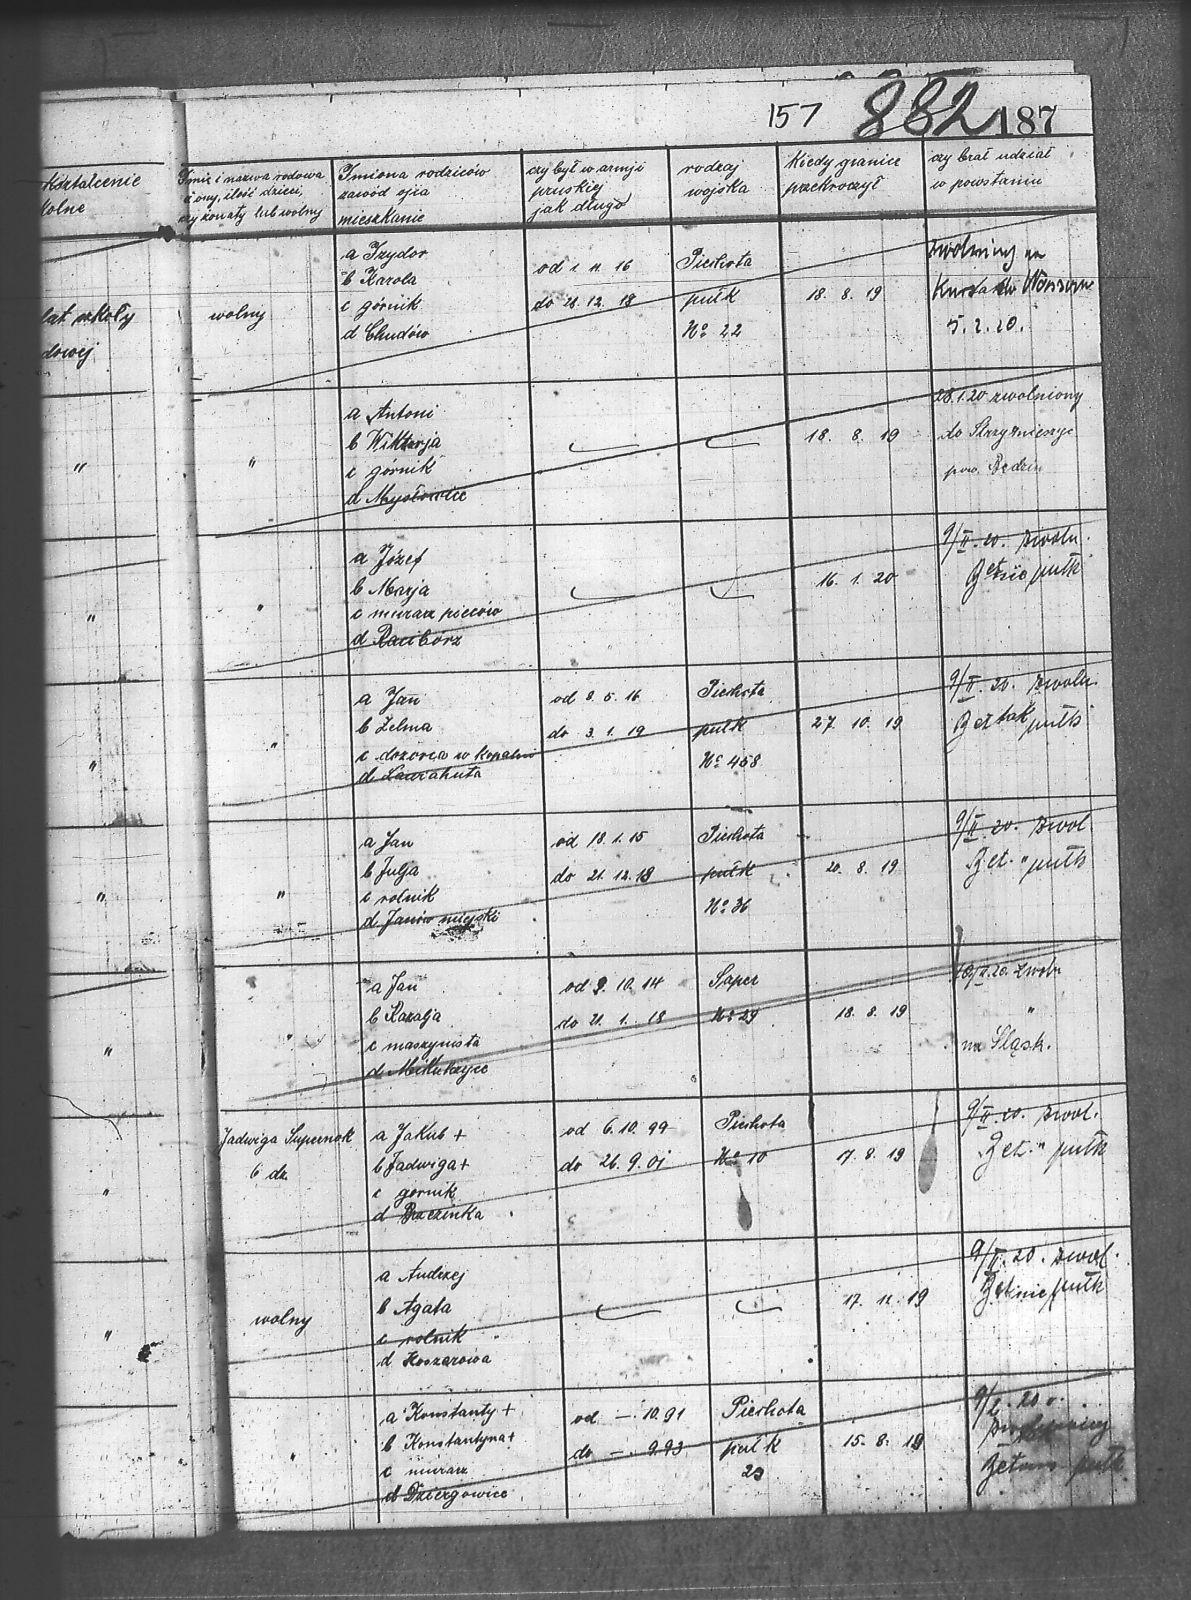 157 882 187
kształcenie
kolne
Imię i nazwa rodowa
żony, ilość dzieci,
czy żonaty lub wolny
Imiona rodziców
zawód ojca
mieszkanie
czy był w armji
pruskiej
jak długo
rodzaj
wojska
Kiedy granicę
przekroczył
czy brał udział
w powstaniu
lat szkoły
dowej
wolny
a Izydor
b Karola
c górnik
d Chudów
od 1. 11. 16
do 21. 12. 18
Piechota
pułk
No 22
18. 8. 19
na
5. 2. 20.
"
"
a Antoni
b Wiktorja
c górnik
d Mysłowice
18. 8. 19
28.1.20 zwolniony
do
pow. Będzin
"
"
a Józef
b Marja
c murarz pieców
d Racibórz
16. 1. 20
9/II. 20. zwoln.
pułk
"
"
a Jan
b Zelma
c dozorca w kopalni
d Laurahuta
od 8. 5. 16
do 3. 1. 19
Piechota
pułk
No 458
27. 10. 19
9/II. 20. zwoln.
pułk
"
"
a Jan
b Julja
c rolnik
d Janów miejski
od 18. 1. 15
do 21. 12. 18
Piechota
pułk
No 36
20. 8. 19
9/II. 20. zwol.
Bet. " pułk
"
"
a Jan
b Rozalja
c maszynista
d Mikulczyce
od 9. 10. 14
do 21. 1. 18
Saper
No 29
18. 8. 19
zwoln
"
na Śląsk.
"
Jadwiga Supernok
6 dz.
a Jakub +
b Jadwiga +
c górnik
d Brzezinka
od 6. 10. 99
do 26. 9. 01
Piechota
No 10
17. 8. 19
9/II. 20. zwol.
Bet. " pułk
"
wolny
a Andrzej
b Agata
c rolnik
d Koszarowa
17. 11. 19
9/II. 20. zwol.
pułk
"
a Konstanty +
b Konstantyna +
c murarz
d Dziergowice
od — 10. 91
do — 9. 93
Piechota
pułk
23
15. 8. 19
pułk